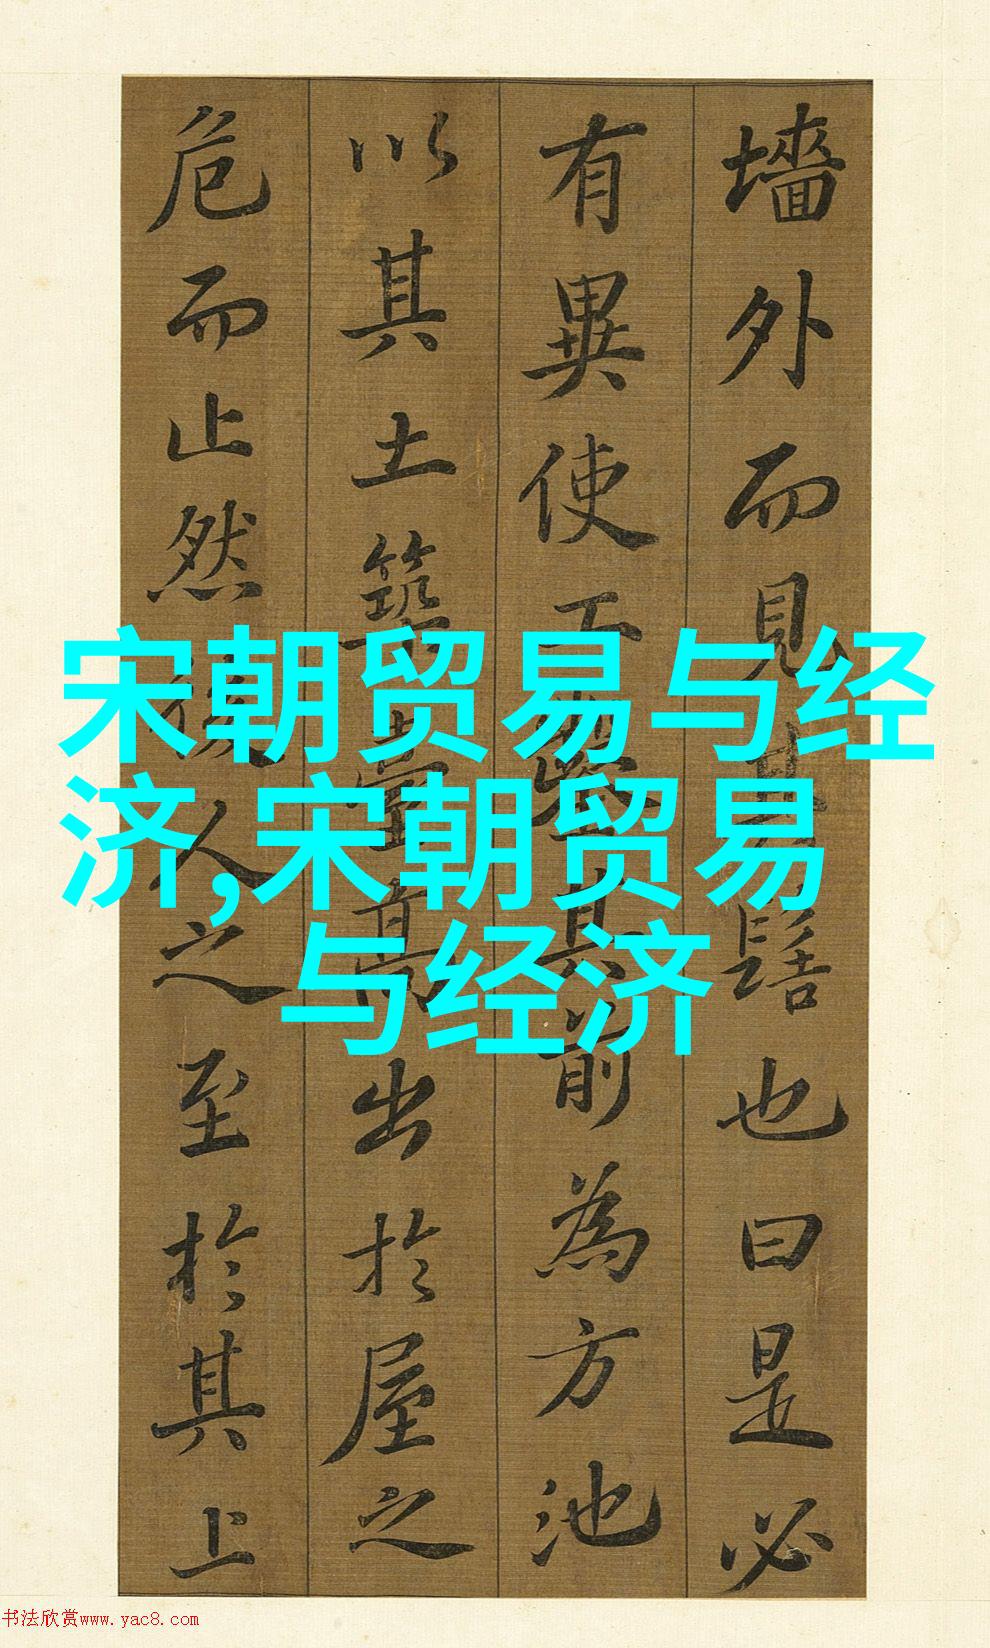 墻外而見其髻也曰是必
有異使工鑿其前為方池
以其土築臺高出於屋之
危而止然後人之至於其上
宋朝贸易与经
济,宋朝贸易
与经济
书法欣赏www.yac8.com